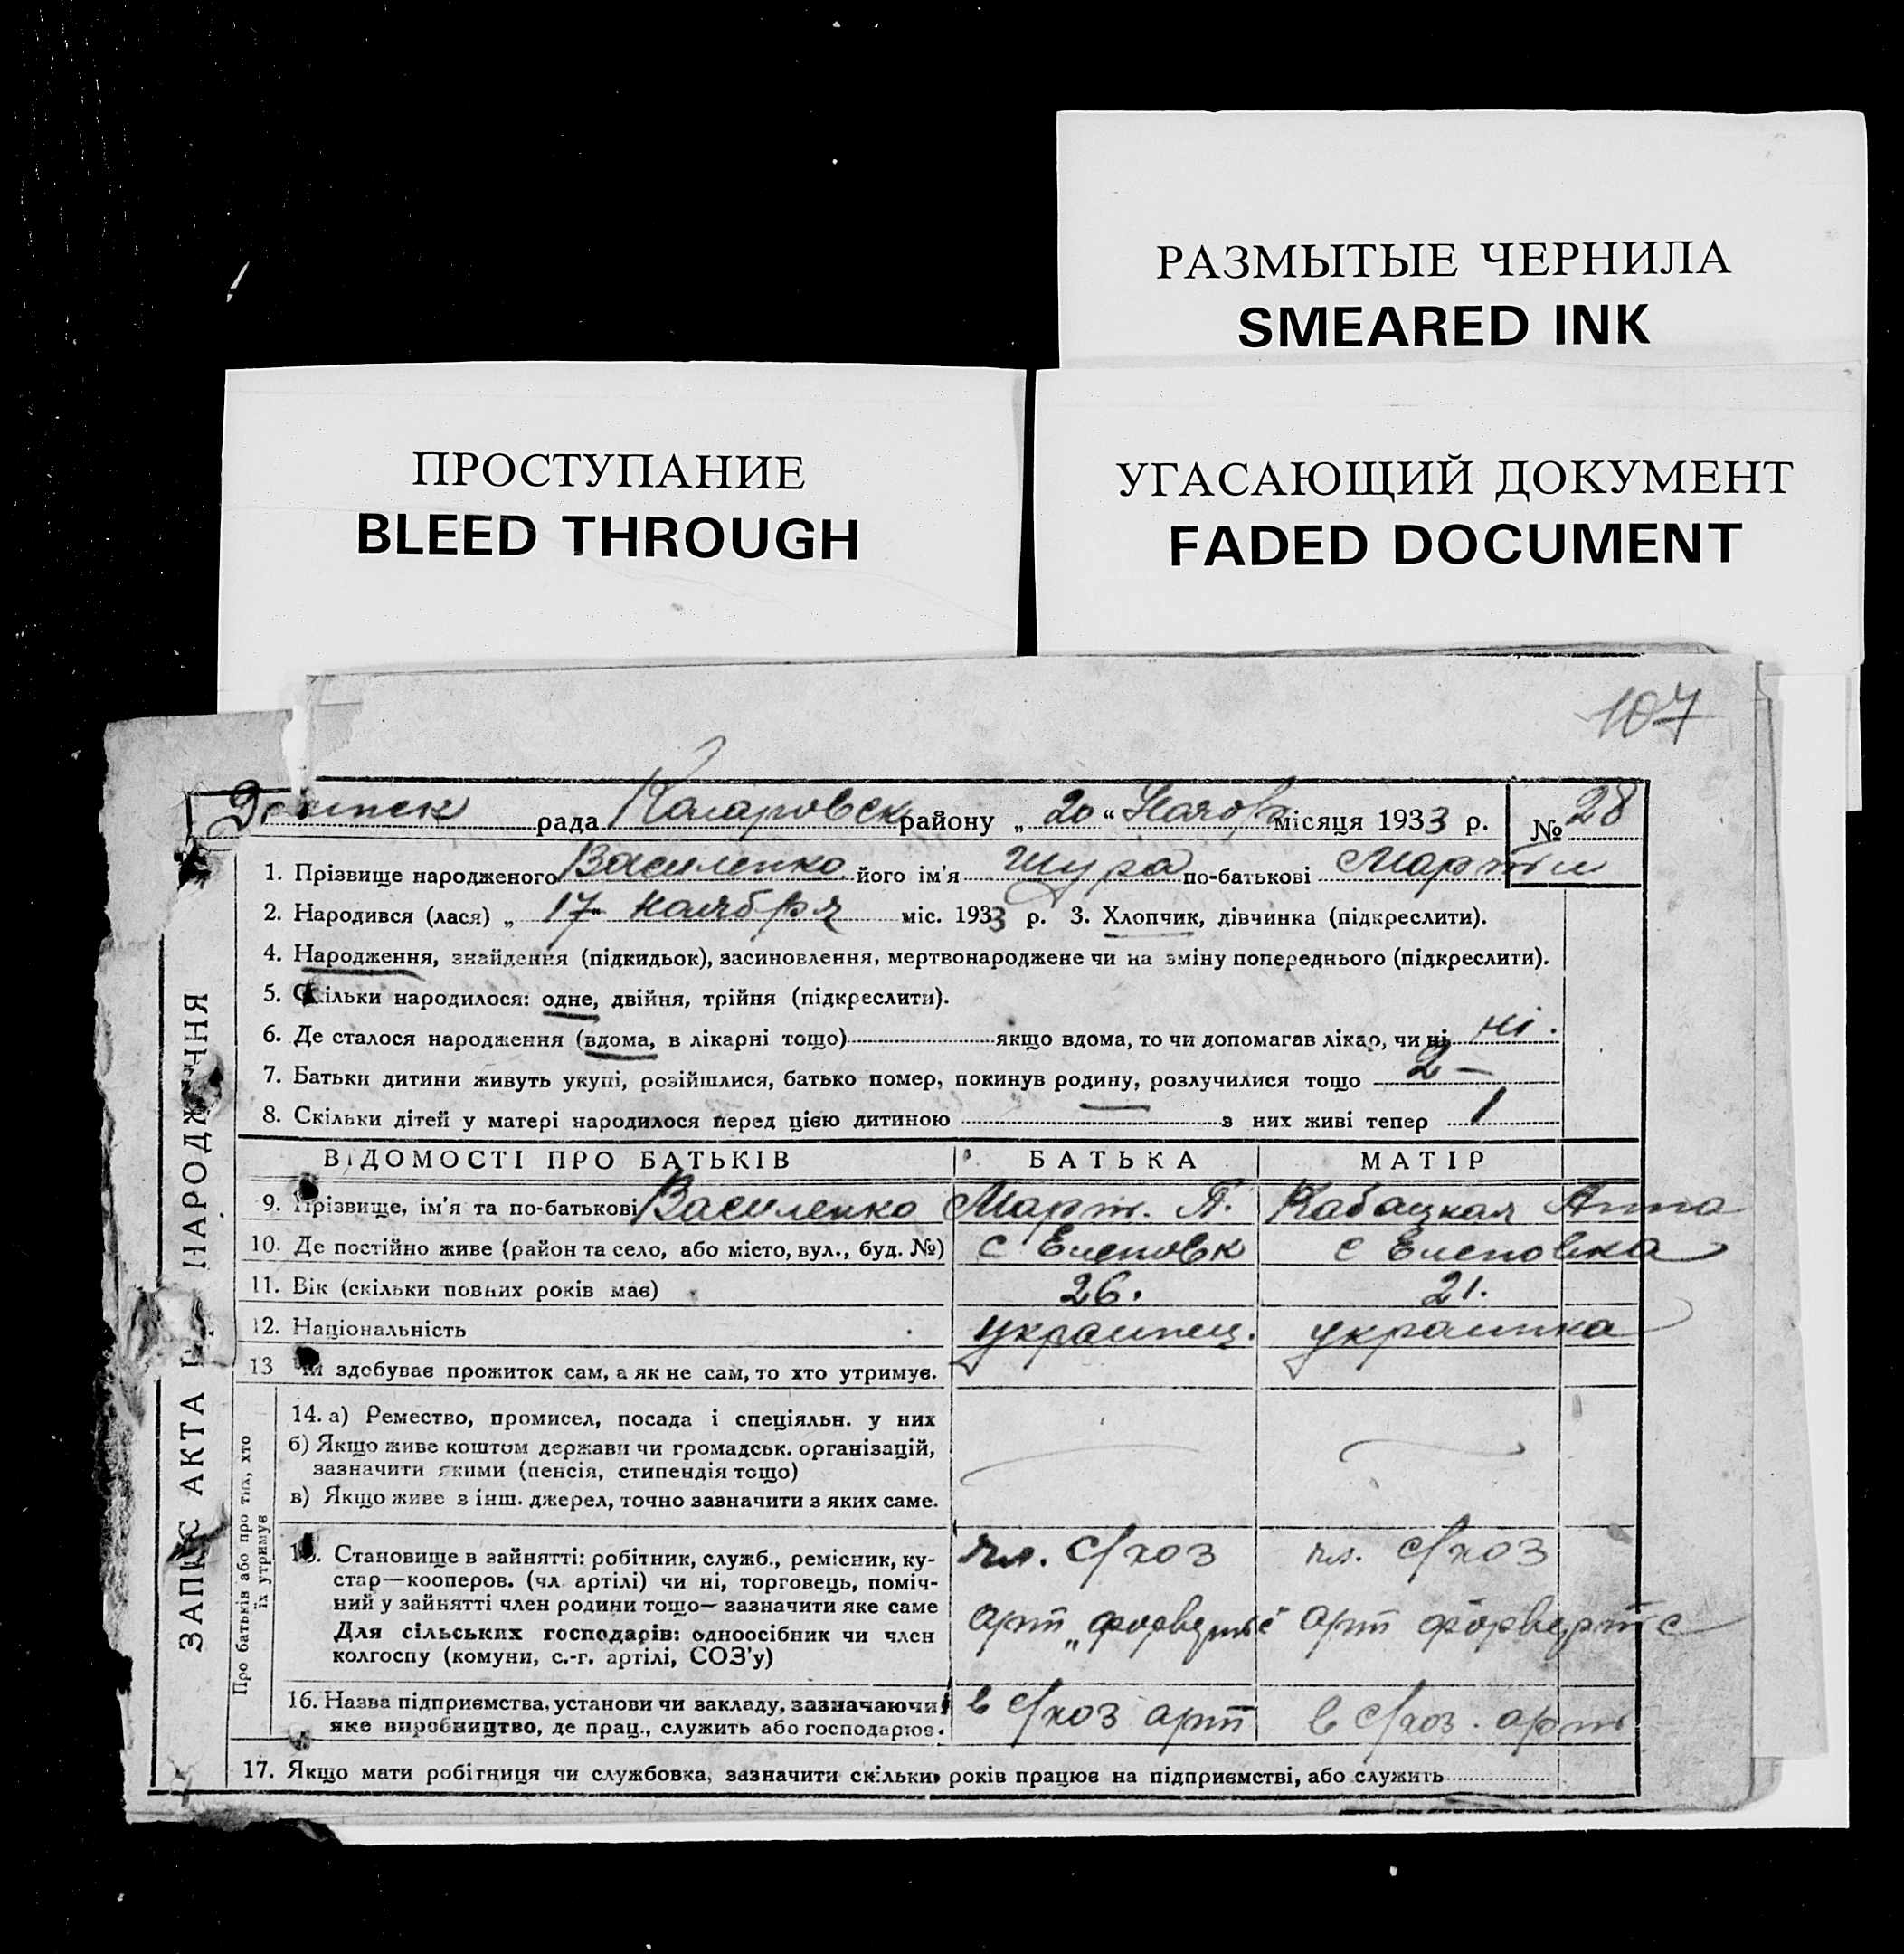 РАЗМЫТЫЕ ЧЕРНИЛА
SMEARED INK
ПРОСТУПАНИЕ
BLEED THROUGH
УГАСАЮЩИЙ ДОКУМЕНТ
FADED DOCUMENT
107
рада Коларовск району „ 20 “ місяця 1933 р. № 28
1. Прізвище народженого Василенко його ім'я Шура по-батькові Мартын
2. Народився (лася) „ 17 ноября міс. 1933 р. 3. Хлопчик, дівчинка (підкреслити).
4. Народження, знайдення (підкидьок), засиновлення, мертвонароджене чи на зміну попереднього (підкреслити).
5. Скільки народилося: одне, двійня, трійня (підкреслити).
6. Де сталося народження (вдома, в лікарні тощо) якщо вдома, то чи допомагав лікар, чи ні ні.
7. Батьки дитини живуть укупі, розійшлися, батько помер, покинув родину, розлучилися тощо
8. Скільки дітей у матері народилося перед цією дитиною — з них живі тепер 1
ЗАПИС АКТА НАРОДЖЕННЯ
ВІДОМОСТІ ПРО БАТЬКІВ БАТЬКА МАТІР
9. Прізвище, ім'я та по-батькові Василенко Март. П. Кабацкая Анна
10. Де постійно живе (район та село, або місто, вул., буд. №) с Еленовк с Еленовка
11. Вік (скільки повних років має) 26. 21.
12. Національність украинец. украинка
13 Чи здобуває прожиток сам, а як не сам, то хто утримує.
Про батьків або про тих, хто
їх утримує
14. а) Ремество, промисел, посада і спеціяльн. у них
б) Якщо живе коштом держави чи громадськ. організацій,
зазначити якими (пенсія, стипендія тощо)
в) Якщо живе з інш. джерел, точно зазначити з яких саме.
15. Становище в зайнятті: робітник, служб., ремісник, ку- чл. с/хоз чл. с/хоз
стар—кооперов. (чл. артілі) чи ні, торговець, поміч-
ний у зайнятті член родини тощо— зазначити яке саме арт „форвертс“ арт форвертс
Для сільських господарів: одноосібник чи член
колгоспу (комуни, с.-г. артілі, СОЗ'у)
16. Назва підприємства, установи чи закладу, зазначаючи в с/хоз арт в с/хоз. арт
яке виробництво, де прац., служить або господарює.
17. Якщо мати робітниця чи службовка, зазначити скільки років працює на підприємстві, або служить